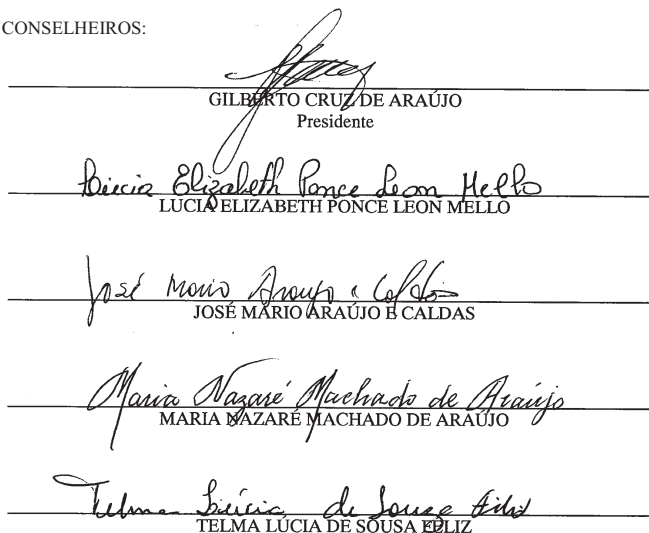 CONSELHEIROS:
GILBERTO CRUZ DE ARAÚJO
Presidente
Lúcia Elizabeth Ponce Leon Mello
LUCIA ELIZABETH PONCE LEON MELLO
José Mario Araujo e Caldas
JOSÉ MÁRIO ARAÚJO E CALDAS
Maria Nazaré Machado de Araújo
MARIA NAZARÉ MACHADO DE ARAÚJO
Telma Lúcia de Souza
TELMA LÚCIA DE SOUSA FELIZ